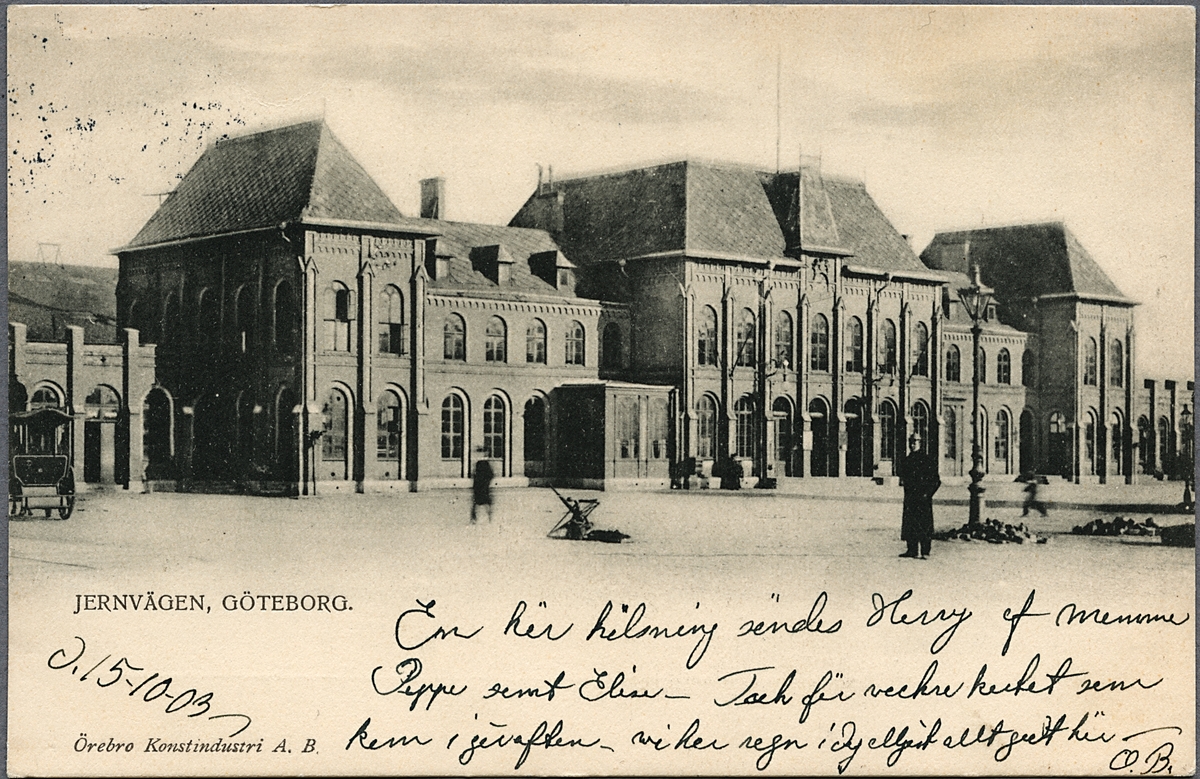 JERNVÄGEN, GÖTEBORG.
En kär hälsning sändes Herry af mamma
Pappa samt Elisa – Tack för vackra kortet som
kom i går afton – vi har regn i dag allt godt här –
D. 15-10-03
O. B.
Örebro Konstindustri A. B.